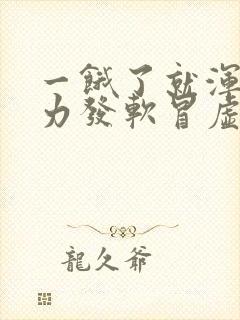 一餓了就渾
力發軟冒虛
龍久爺